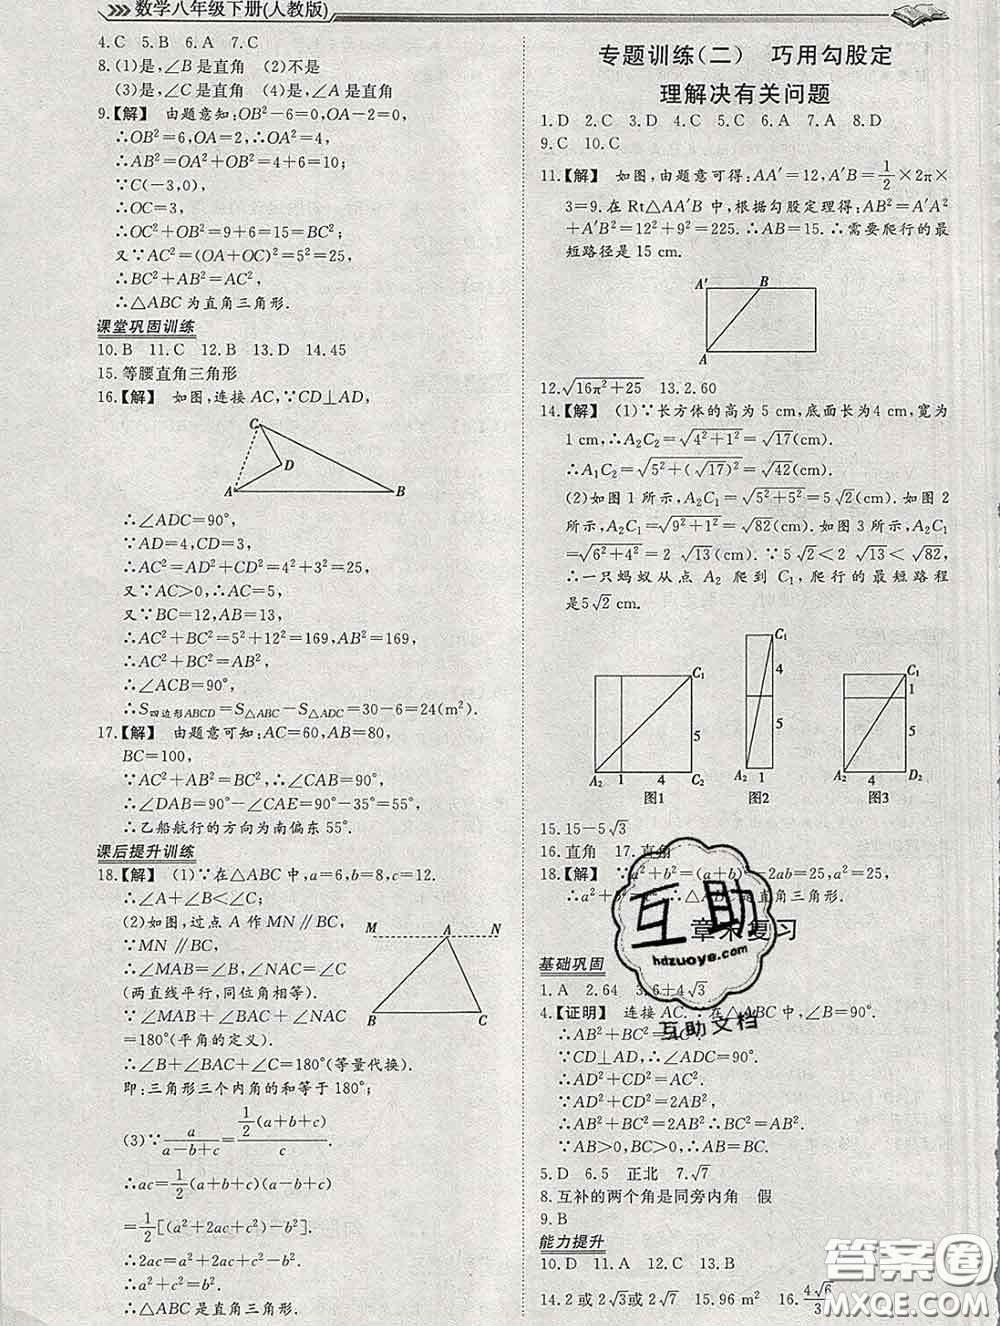 数学八年级下册(人教版)
4.C 5.B 6.A 7.C
8.(1)是,∠B是直角 (2)不是
(3)是,∠C是直角 (4)是,∠A是直角
9.【解】 由题意知:OB²－6＝0,OA－2＝0,
∴OB²＝6,OA＝2,∴OA²＝4,
∴AB²＝OA²＋OB²＝4＋6＝10;
∵C(－3,0),
∴OC＝3,
∴OC²＋OB²＝9＋6＝15＝BC²;
又∵AC²＝(OA＋OC)²＝5²＝25,
∴BC²＋AB²＝AC²,
∴△ABC为直角三角形.
课堂巩固训练
10.B 11.C 12.B 13.D 14.45
15.等腰直角三角形
16.【解】 如图,连接AC,∵CD⊥AD,
C
D
A B
∴∠ADC＝90°,
∵AD＝4,CD＝3,
∴AC²＝AD²＋CD²＝4²＋3²＝25,
又∵AC＞0,∴AC＝5,
又∵BC＝12,AB＝13,
∴AC²＋BC²＝5²＋12²＝169,AB²＝169,
∴AC²＋BC²＝AB²,
∴∠ACB＝90°,
∴S四边形ABCD＝S△ABC－S△ADC＝30－6＝24(m²).
17.【解】 由题意可知:AC＝60,AB＝80,
BC＝100,
∵AC²＋AB²＝BC²,∴∠CAB＝90°,
∴∠DAB＝90°－∠CAE＝90°－35°＝55°,
∴乙船航行的方向为南偏东55°.
课后提升训练
18.【解】 (1)∵在△ABC中,a＝6,b＝8,c＝12.
∴∠A＋∠B＜∠C;
(2)如图,过点A作MN∥BC,
∵MN∥BC,
∴∠MAB＝∠B,∠NAC＝∠C
(两直线平行,同位角相等),
∵∠MAB＋∠BAC＋∠NAC
＝180°(平角的定义).
∴∠B＋∠BAC＋∠C＝180°(等量代换).
即:三角形三个内角的和等于180°;
M A N
B C
(3)∵a/(a－b＋c)＝½(a＋b＋c)/c.
∴ac＝½(a＋b＋c)(a－b＋c)
＝½[(a²＋2ac＋c²)－b²].
∴2ac＝a²＋2ac＋c²－b²,
∴a²＋c²＝b²,
∴△ABC是直角三角形.
专题训练(二) 巧用勾股定
理解决有关问题
1.D 2.C 3.D 4.C 5.C 6.A 7.A 8.D
9.C 10.C
11.【解】 如图,由题意可得:AA′＝12,A′B＝½×2π×
3＝9.在Rt△AA′B中,根据勾股定理得:AB²＝A′A²
＋A′B²＝12²＋9²＝225.∴AB＝15.∴需要爬行的最
短路径是15 cm.
A′ B
A
12.√(16π²＋25) 13.2.60
14.【解】 (1)∵长方体的高为5 cm,底面长为4 cm,宽为
1 cm,∴A₂C₂＝√(4²＋1²)＝√17(cm).
∴A₁C₂＝√(5²＋(√17)²)＝√42(cm).
(2)如图1所示,A₂C₁＝√(5²＋5²)＝5√2(cm).如图2
所示,A₂C₁＝√(9²＋1²)＝√82(cm).如图3所示,A₂C₁
＝√(6²＋4²)＝2√13(cm).∵5√2＜2√13＜√82,
∴一只蚂蚁从点A₂爬到C₁,爬行的最短路程
是5√2 cm.
C₁
5
A₂ 1 4 C₂
图1
C₁
4
5
A₂ 1
图2
C₁
1
5
A₂ 4 D₂
图3
15.15－5√3
16.直角 17.直角
18.【解】 ∵a²＋b²＝(a＋b) 2ab＝25,c²＝25,
∴a²＋ ∴△ 是直角三角形.
章末复习
基础巩固
1.A 2.64 3.6＋4√3
4.【证明】 连接AC.∵在△ABC中,∠B＝90°.
∴AB²＋BC²＝AC².
∵CD⊥AD,∴∠ADC＝90°.
∴AD²＋CD²＝AC².
∵AD²＋CD²＝2AB²,
∴AB²＋BC²＝2AB²∴BC²＝AB².
∵AB＞0,BC＞0,∴AB＝BC.
5.D 6.5 正北 7.√7
8.互补的两个角是同旁内角 假
9.B
能力提升
10.D 11.A 12.C 13.B
14.2或2√3或2√7 15.96 m² 16.4√6/3
互助
hdzuoye.com
互助文档
答案圈
MXQE.COM